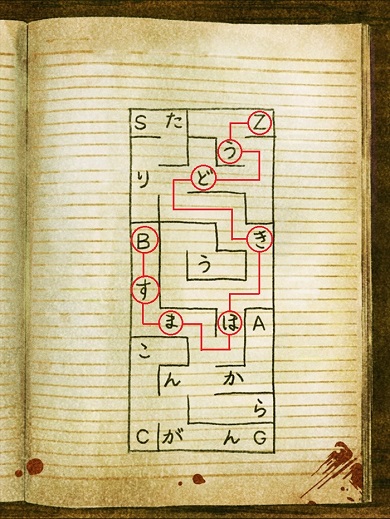 S た Z
う
り ど
B き
う
す
ま ほ A
こ
ん か
ら
C が ん G